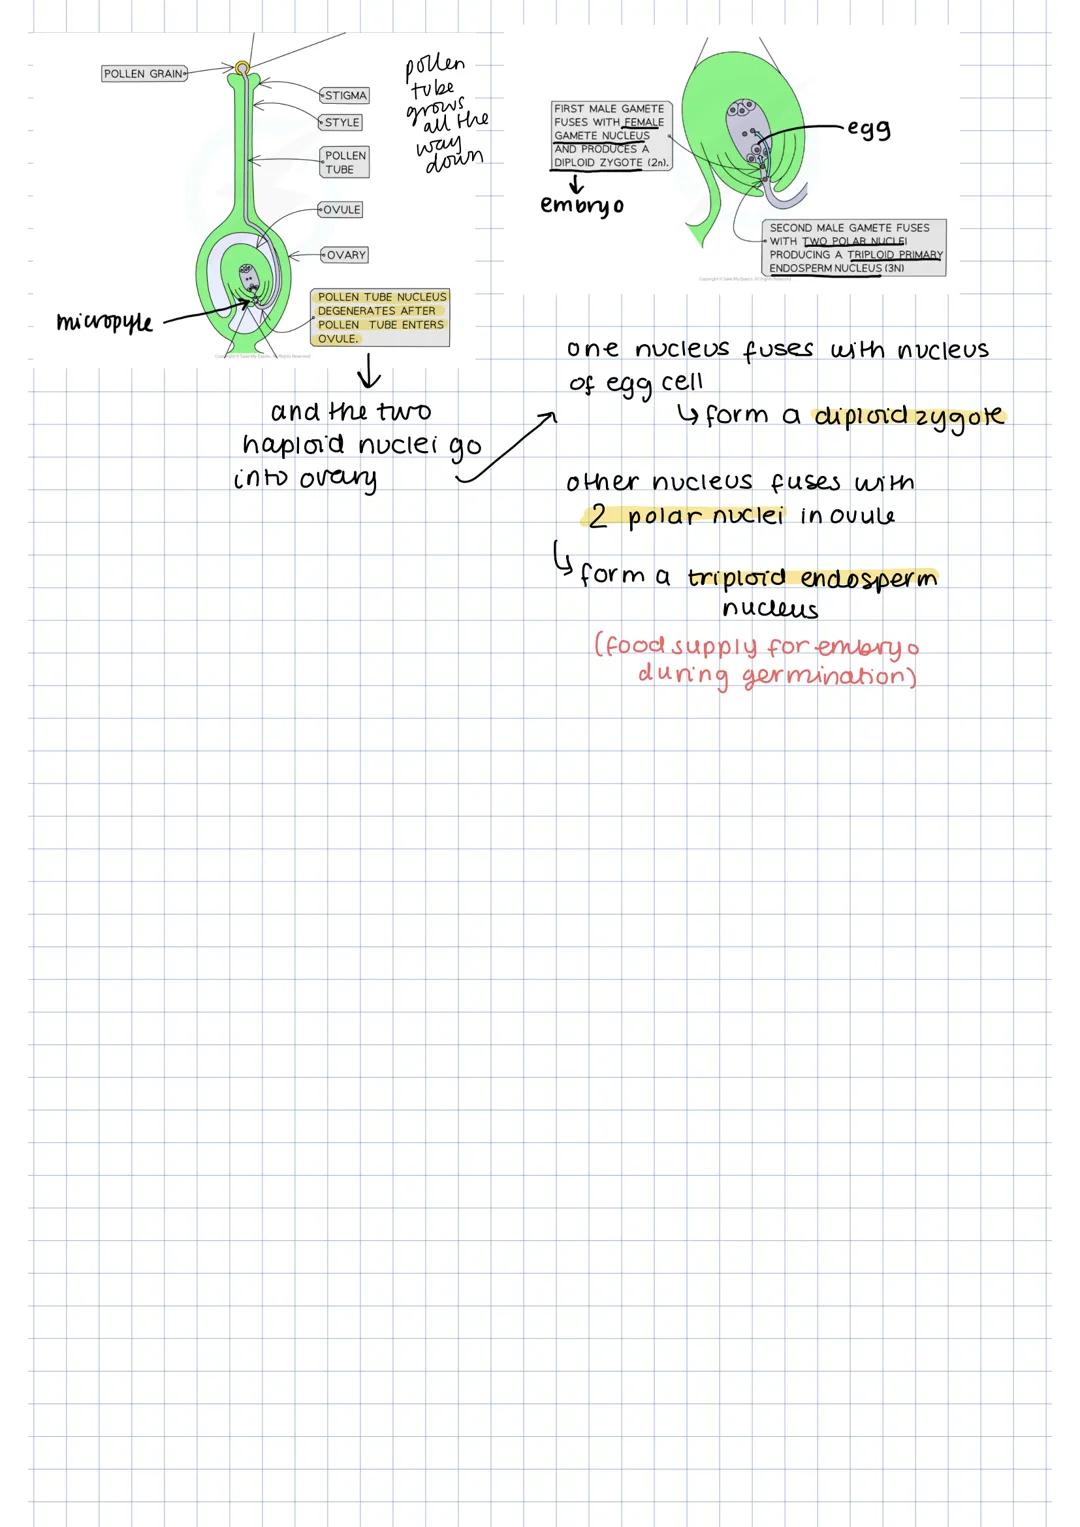 POLLEN GRAIN
STIGMA
STYLE
POLLEN
TUBE
OVULE
OVARY
POLLEN TUBE NUCLEUS
DEGENERATES AFTER
POLLEN TUBE ENTERS
OVULE.
micropyle
pollen
tube
grows
all the
way
down
and the two
haploid nuclei go
into ovary
FIRST MALE GAMETE
FUSES WITH FEMALE
GAMETE NUCLEUS
AND PRODUCES A
DIPLOID ZYGOTE (2n).
embryo
egg
SECOND MALE GAMETE FUSES
WITH TWO POLAR NUCLEI
PRODUCING A TRIPLOID PRIMARY
ENDOSPERM NUCLEUS (3N)
one nucleus fuses with nucleus
of egg cell
form a diploid zygote
other nucleus fuses with
2 polar nuclei in ovule
form a triploid endosperm
nucleus
(food supply for embryo
during germination)